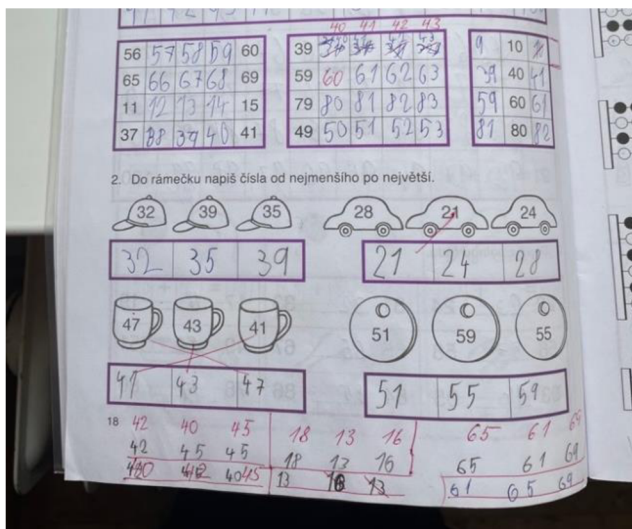 40 41 42 43
56 57 58 59 60
65 66 67 68 69
11 12 13 14 15
37 38 39 40 41
39
59 60 61 62 63
79 80 81 82 83
49 50 51 52 53
9 10
39 40 41
59 60 61
81 80 82
2. Do rámečku napiš čísla od nejmenšího po největší.
32 39 35
28 21 24
32 35 39
21 24 28
47 43 41
51 59 55
41 43 47
51 55 59
18
42 40 45
18 13 16
65 61 69
42 45 45
18 13 16
65 61 69
13
61 65 69